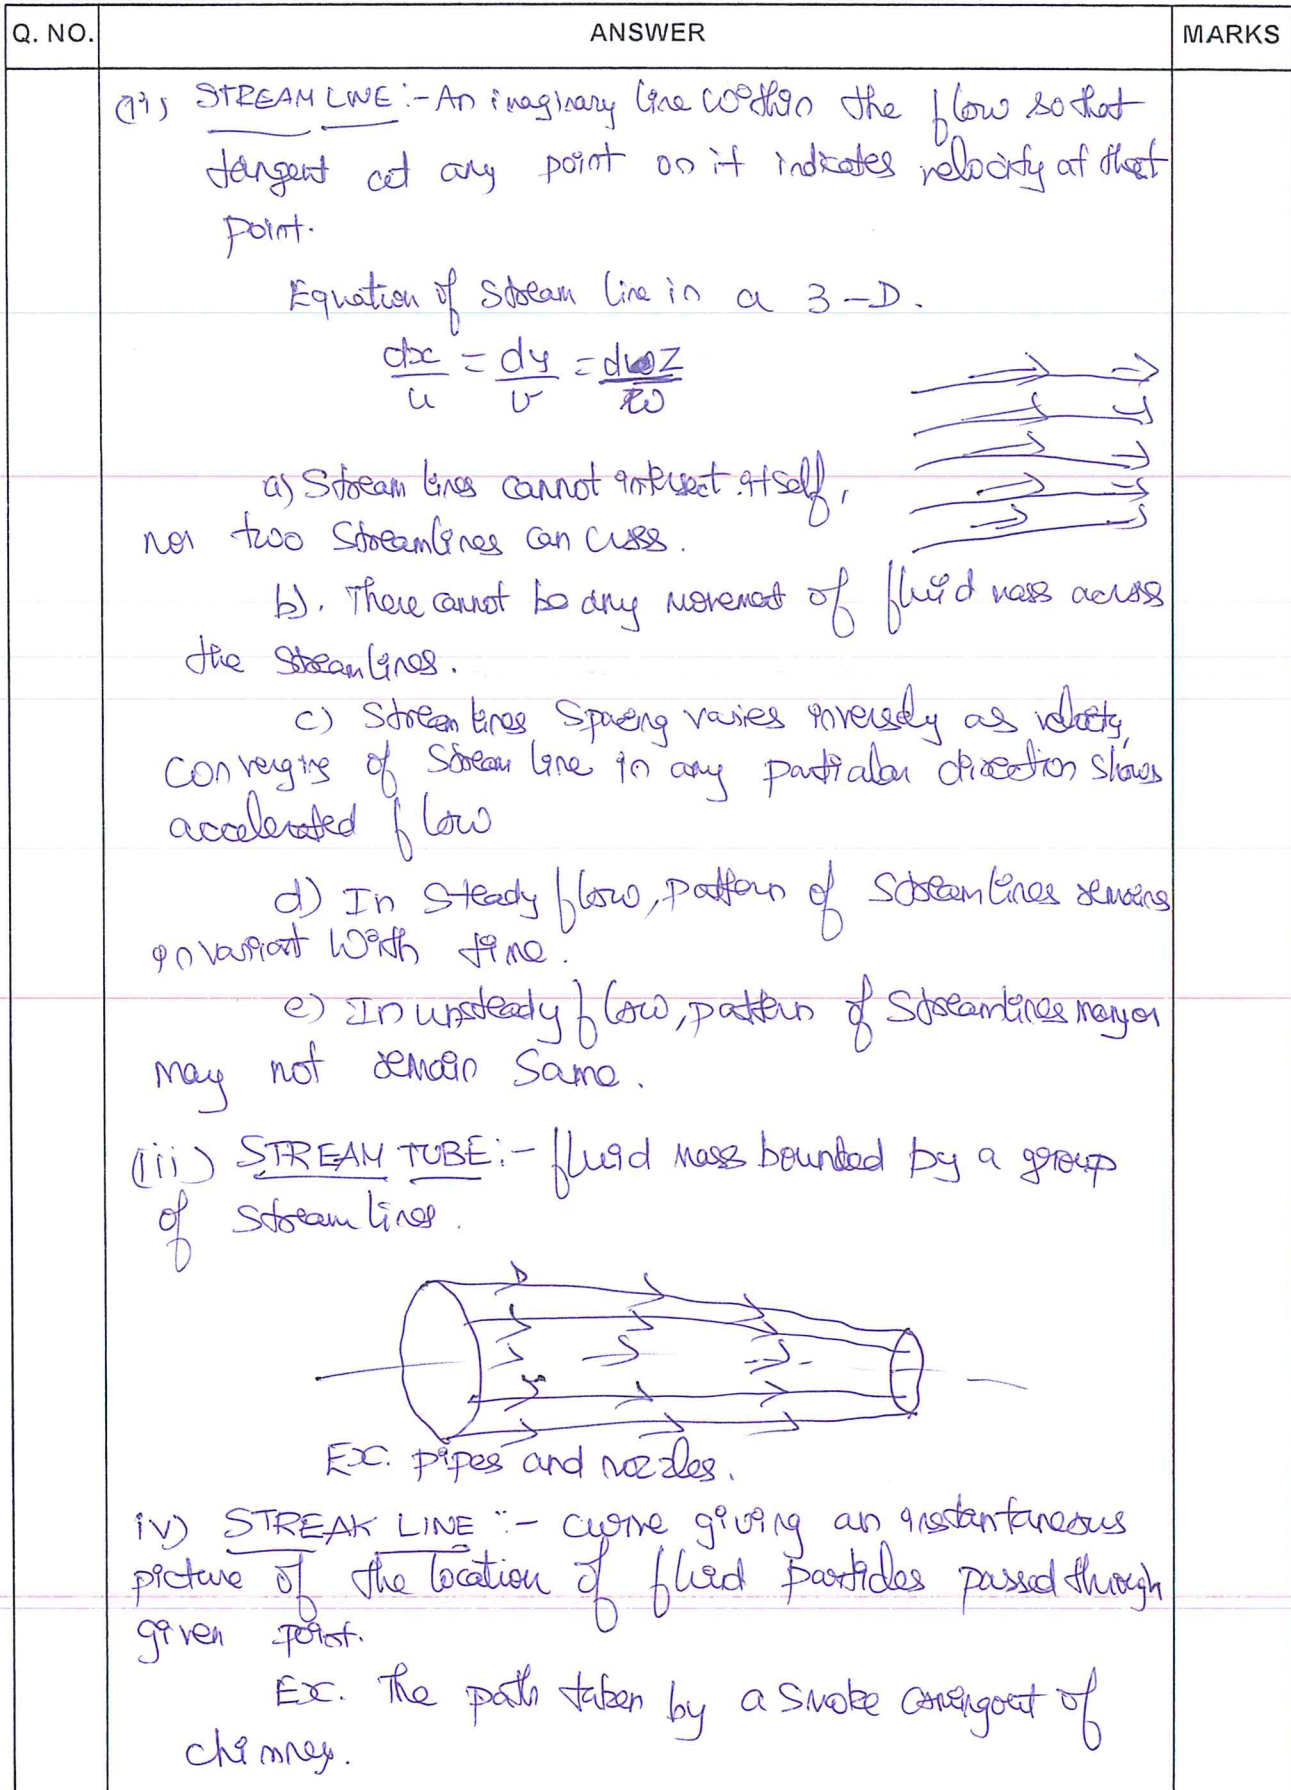 Q. NO. ANSWER MARKS
(ii) STREAM LINE :- An imaginary line within the flow so that
tangent at any point on it indicates velocity at that
point.
Equation of Stream line in a 3-D.
dx/u = dy/v = dz/w
a) Stream lines cannot intersect itself,
nor two Streamlines can cross.
b). There cannot be any movement of fluid mass across
the Streamlines.
c) Stream lines Spacing varies inversely as velocity,
converging of Stream line in any particular direction shows
accelerated flow
d) In Steady flow, pattern of Streamlines remains
invariant with time.
e) In unsteady flow, pattern of Streamlines may or
may not remain Same.
(iii) STREAM TUBE :- fluid mass bounded by a group
of stream lines.
Ex. pipes and nozzles.
iv) STREAK LINE :- curve giving an instantaneous
picture of the location of fluid particles passed through
given point.
Ex. The path taken by a smoke coming out of
chimney.